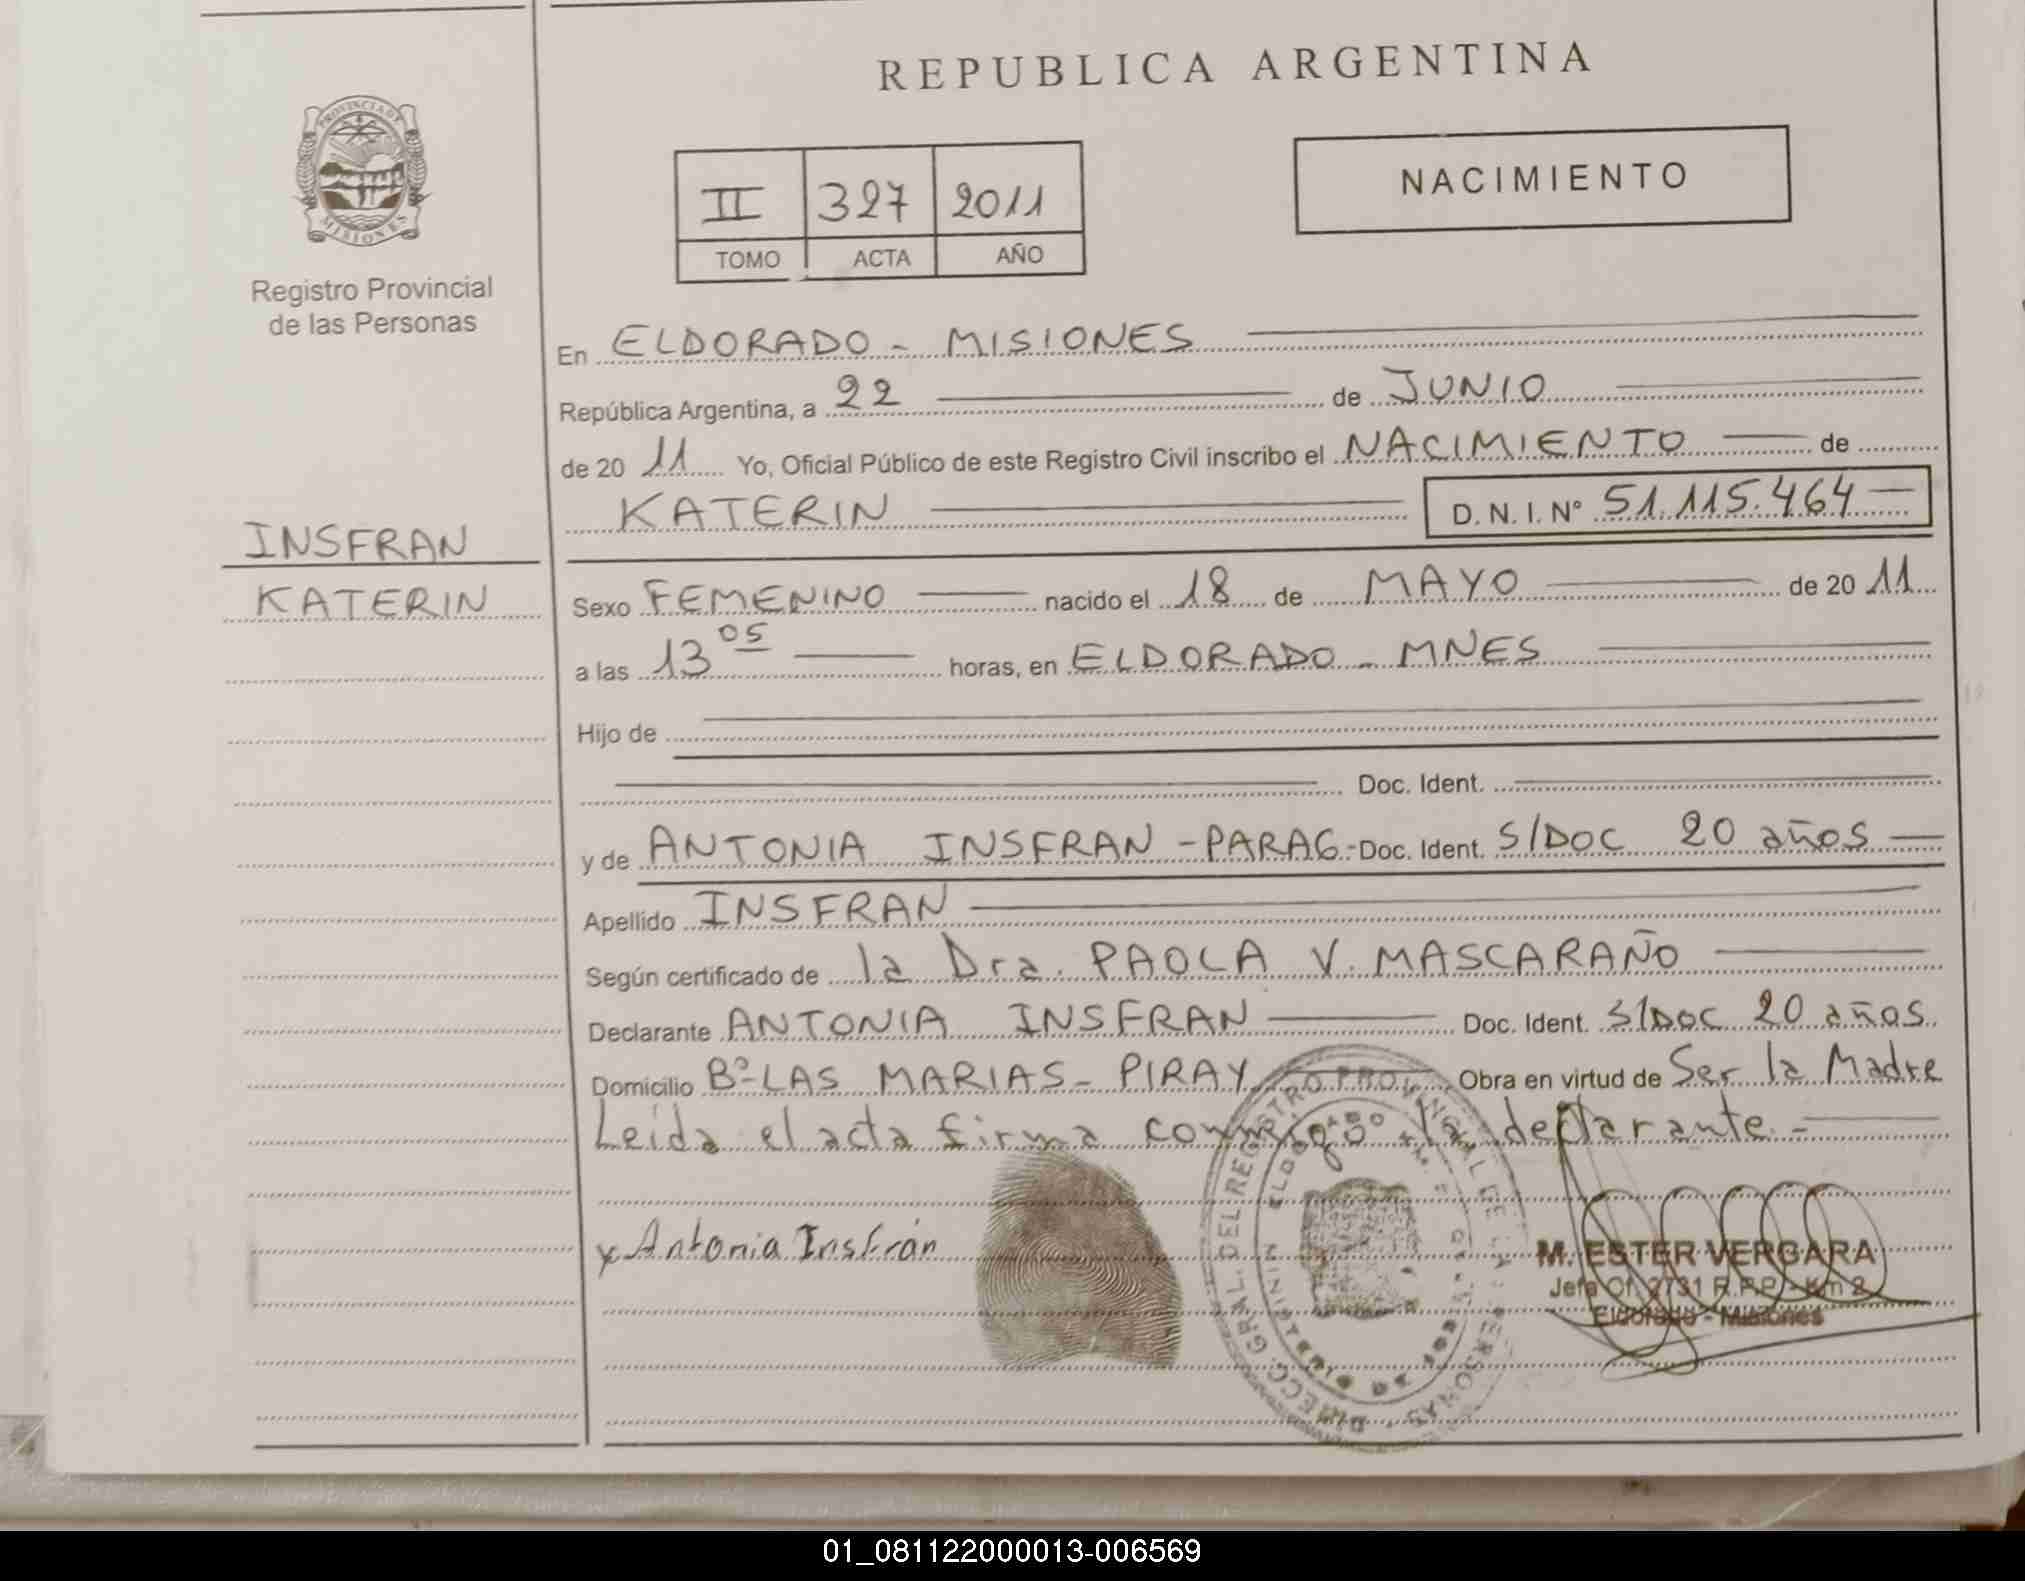 REPUBLICA ARGENTINA
PROVINCIA DE
MISIONES
Registro Provincial
de las Personas
NACIMIENTO
II 327 2011
TOMO ACTA AÑO
En ELDORADO - MISIONES
República Argentina, a 22 de JUNIO
de 20 11 Yo, Oficial Público de este Registro Civil inscribo el NACIMIENTO de
KATERIN D. N. I. Nº 51.115.464
INSFRAN
KATERIN
Sexo FEMENINO nacido el 18 de MAYO de 20 11
a las 13 05 horas, en ELDORADO - MNES
Hijo de
Doc. Ident.
y de ANTONIA INSFRAN - PARAG.- Doc. Ident. S/DOC 20 años
Apellido INSFRAN
Según certificado de la Dra. PAOLA V. MASCARAÑO
Declarante ANTONIA INSFRAN Doc. Ident. S/DOC 20 años
Domicilio Bº-LAS MARIAS - PIRAY Obra en virtud de Ser la Madre
Leída el acta firma conmigo la declarante.-
x Antonia Insfrán
DIRECC. GRAL. DEL REGISTRO PROVINCIAL DE LAS PERSONAS
ELDORADO
M. ESTER VERGARA
Jefa Of. 2731 R.P.P. - Km 2
Eldorado - Misiones
01_081122000013-006569